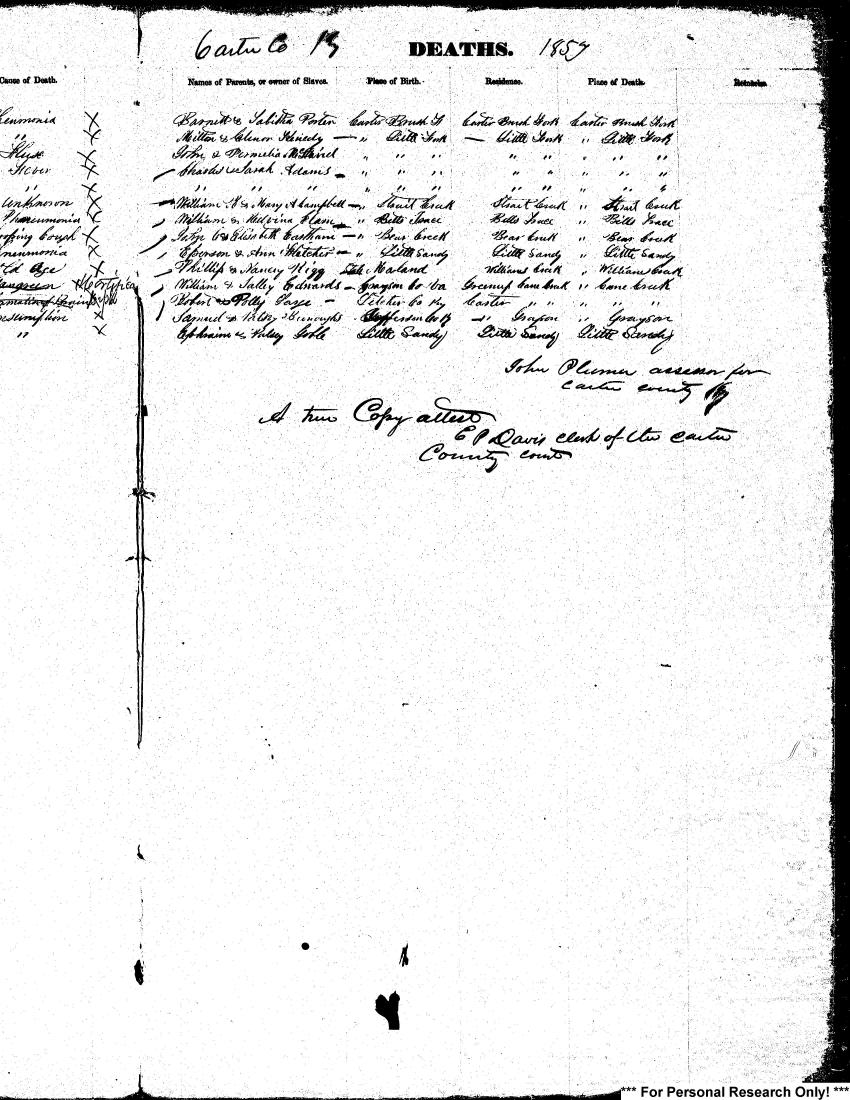 Carter Co Ky DEATHS. 1857
Cause of Death. Names of Parents, or owner of Slaves. Place of Birth. Residence. Place of Death. Remarks.
Barnett & Tabitha Porter Carter Brush F Carter Brush Fork Carter Brush Fork
" Milton & Elenor Kenedy — " Little Fork — Little Fork " Little Fork
Flux John & Permelia " " " " " " " "
Fever Charles & Sarah Adams — " " " " " " " "
" " " " " " " " " " " "
Unknown William & Mary A Campbell — " Strait Creek Strait Creek " Strait Creek
Pneumonia William & Melvina " Bells Trace Bells Trace " Bells Trace
Cough John & Elisibeth Eastham — " Bear Creek Bear Creek " Bear Creek
neumonia Eperson & Ann — " Little Sandy Little Sandy " Little Sandy
ld Age Phillip & Nancy Rigg Maland Williams Creek " Williams Creek
William & Salley Edwards — Grayson Co Va Greenup Cane Creek " Cane Creek
Robert & Polly Page — Co Ky Carter " " " " "
nsumption Samuel & Burroughs Jefferson Co Grayson " Grayson
" Ephraim & Goble Little Sandy Little Sandy Little Sandy
John Plumer assessor for
Carter county Ky
A true Copy attest
E P Davis clerk of the Carter
County court
*** For Personal Research Only! ***